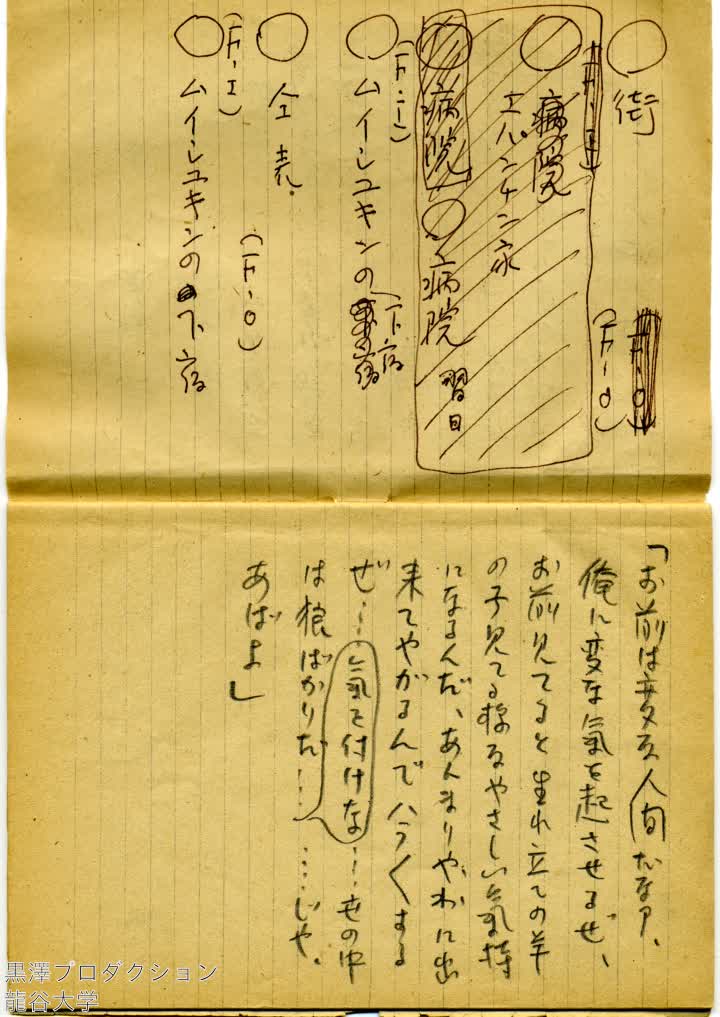 ○ 街
(F・O)
(F・O)
○ 病院
エパンチン家
○ 病院
○ 病院
翌日
(F・I)
○ ムイシュキンの下宿
(F・O)
○ 全 表.
(F・I)
○ ムイシュキンの下宿
「お前は変な人間だなア、
俺に変な氣を起させるぜ、
お前見てると生れ立ての羊
の子見てる様なやさしい氣持
になるんだ、あんまりやわに出
来てやがるんでハラ〱する
ぜ…氣を付けな…世の中
は狼ばかりだ………じや、
あばよ」
黒澤プロダクション
龍谷大学